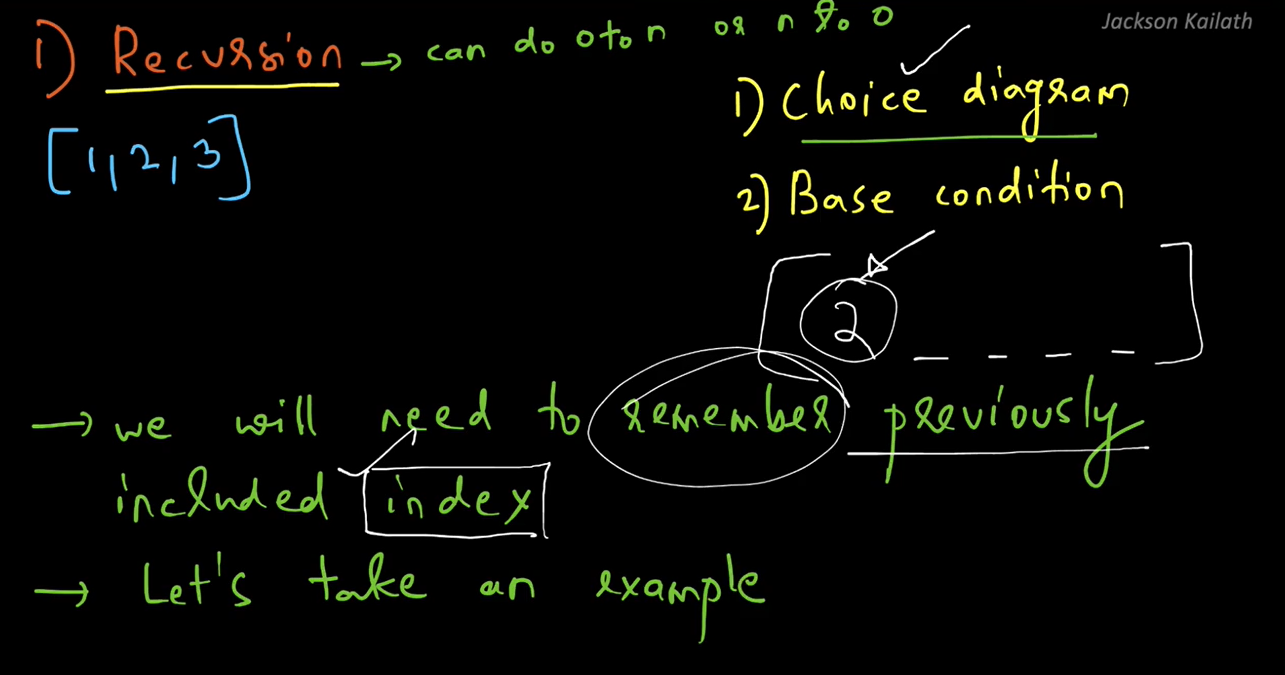 Jackson Kailath
1) Recursion → can do 0 to n or n to 0
[1, 2, 3]
1) Choice diagram
2) Base condition
[ 2 _ _ _ _ ]
→ we will need to remember previously
included index
→ Let's take an example